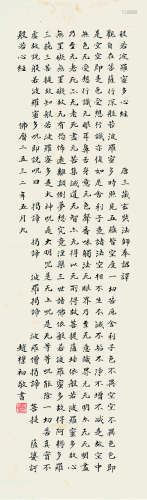 般若波羅蜜多心經 唐三藏玄奘法師奉詔譯
觀自在菩薩行深般若波羅蜜多時照見五蘊皆空度一切苦厄舍利子色不異空空不異色色即
是空空即是色受想行識亦復如是舍利子是諸法空相不生不滅不垢不淨不增不減是故空中
無色無受想行識無眼耳鼻舌身意無色聲香味觸法無眼界乃至無意識界無無明亦無無明盡
乃至無老死亦無老死盡無苦集滅道無智亦無得以無所得故菩提薩埵依般若波羅蜜多故心
無罣礙無罣礙故無有恐怖遠離顛倒夢想究竟涅槃三世諸佛依般若波羅蜜多故得阿耨多羅
三藐三菩提故知般若波羅蜜多是大神咒是大明咒是無上咒是無等等咒能除一切苦真實不
虛故說般若波羅蜜多咒即說咒曰 揭諦 揭諦 波羅揭諦 波羅僧揭諦 菩提 薩婆訶
般若心經 佛曆二五三二年五月九 趙樸初敬書